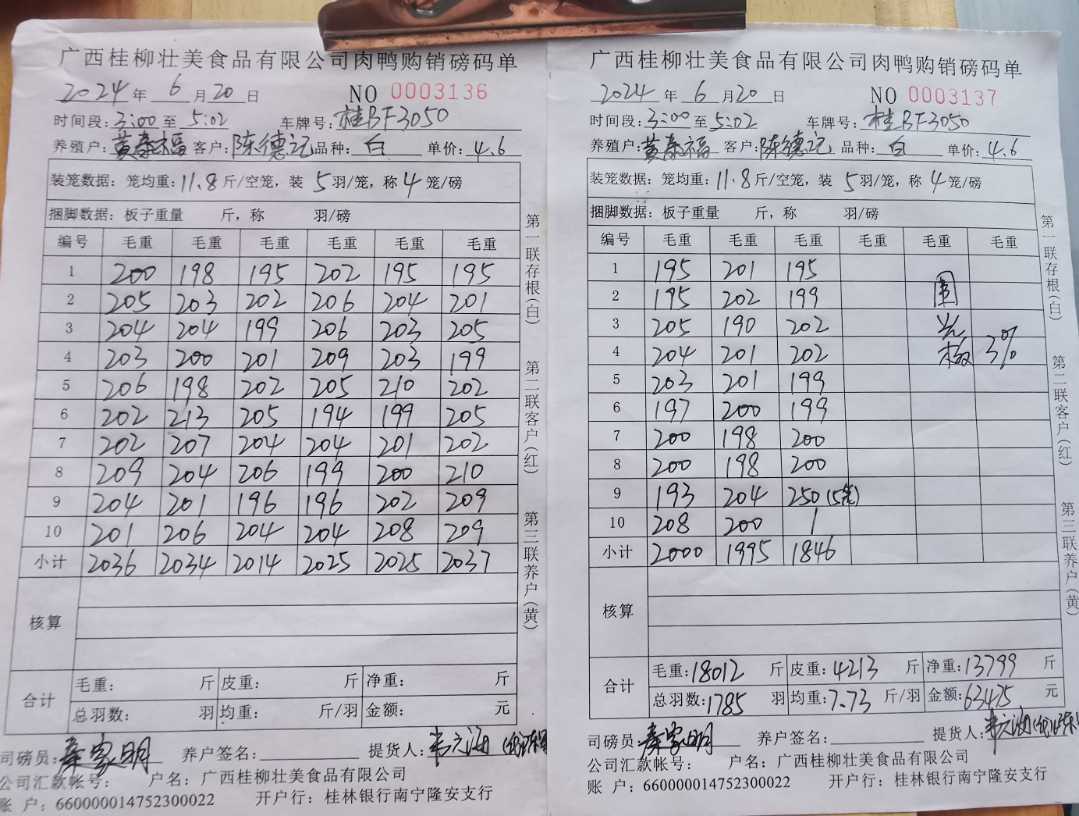 广西桂柳壮美食品有限公司肉鸭购销磅码单
2024 年 6 月 20 日 NO 0003136
时间段: 3:00 至 5:02 车牌号: 桂BF3050
养殖户: 黄泰福 客户: 陈德记 品种: 白 单价: 4.6
装笼数据: 笼均重: 11.8 斤/空笼, 装 5 羽/笼, 称 4 笼/磅
捆脚数据: 板子重量 斤, 称 羽/磅
编号 毛重 毛重 毛重 毛重 毛重 毛重
1 200 198 195 202 195 195
2 205 203 202 206 204 201
3 204 204 199 206 203 205
4 203 200 201 209 203 199
5 206 198 202 205 210 202
6 202 213 205 194 199 205
7 202 207 204 204 201 202
8 209 204 206 199 200 210
9 204 201 196 196 202 209
10 201 206 204 204 208 209
小计 2036 2034 2014 2025 2025 2037
核算
合计 毛重: 斤 皮重: 斤 净重: 斤
总羽数: 羽 均重: 斤/羽 金额: 元
司磅员: 秦家明 养户签名: 提货人:
公司汇款帐号: 户名: 广西桂柳壮美食品有限公司
账 户: 660000014752300022 开户行: 桂林银行南宁隆安支行
第一联存根(白)
第二联客户(红)
第三联养户(黄)
广西桂柳壮美食品有限公司肉鸭购销磅码单
2024 年 6 月 20 日 NO 0003137
时间段: 3:00 至 5:02 车牌号: 桂BF3050
养殖户: 黄泰福 客户: 陈德记 品种: 白 单价: 4.6
装笼数据: 笼均重: 11.8 斤/空笼, 装 5 羽/笼, 称 4 笼/磅
捆脚数据: 板子重量 斤, 称 羽/磅
编号 毛重 毛重 毛重 毛重 毛重 毛重
1 195 201 195
2 195 202 199
3 205 190 202
4 204 201 202 3%
5 203 201 199
6 197 200 199
7 200 198 200
8 200 198 200
9 193 204 250 (5笼)
10 208 200 /
小计 2000 1995 1846
核算
合计 毛重: 18012 斤 皮重: 4213 斤 净重: 13799 斤
总羽数: 1785 羽 均重: 7.73 斤/羽 金额: 63475 元
司磅员: 秦家明 养户签名: 提货人:
公司汇款帐号: 户名: 广西桂柳壮美食品有限公司
账 户: 660000014752300022 开户行: 桂林银行南宁隆安支行
第一联存根(白)
第二联客户(红)
第三联养户(黄)